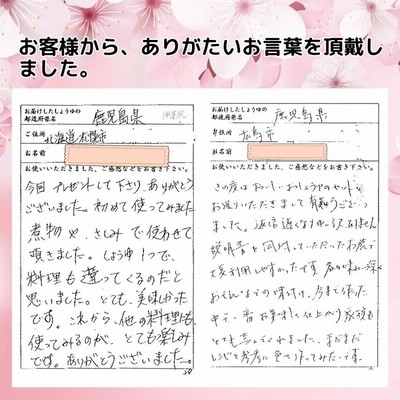 お客様から、ありがたいお言葉を頂戴し
ました。
お届けしたしょうゆの
都道府県名
鹿児島県
ご住所
北海道札幌市
お名前
お使いいただきました、ご感想などをお書き下さい。
今回プレゼントして下さり、ありがとう
ございました。初めて使ってみました
煮物や、さしみで使わせて
頂きました。しょうゆ1つで、
料理も違ってくるのだと
思いました。とても、美味しかった
です。これから、他の料理も、
使ってみるのが、とても楽しみ
です。ありがとうございました。
お届けしたしょうゆの
都道府県名
鹿児島県
ご住所
広島市
お名前
お使いいただきました、ご感想などをお書き下さい。
この度はおいしいおしょうゆのセット
お送りいただきまして有難うござい
ました。返信遅くなり
説明書を同封していただったお蔭で
大変利用しやすかったです。
おでんなどの味付け、今まで作った
中で一番お美味しく仕上がり家族も
とても喜んでくれました。まだまだ
レシピを参考に色々作ってみたいです。